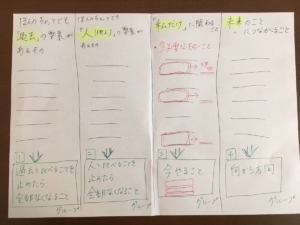 ほんのちょっとでも
過去の要素が
あるもの
ほんのちょっとでも
「人(他人)」の要素が
あるもの
「私だけ」に関わる
こと
未来のこと
につながること
1
過去と比べることを
止めたら
全部なくなること
グループ
2
人と比べることを
止めたら
全部なくなること
グループ
3
今やること
グループ
4
グループ